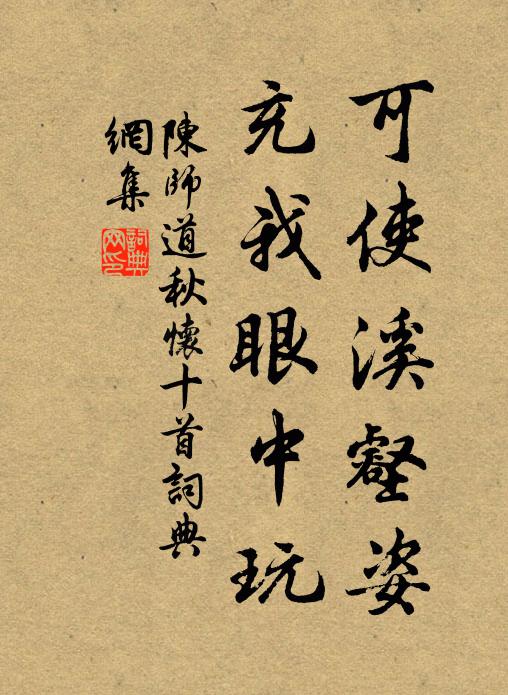 可使溪壑姿
充我眼中玩
陳師道秋懷十首詞典
網集
詞典
網印